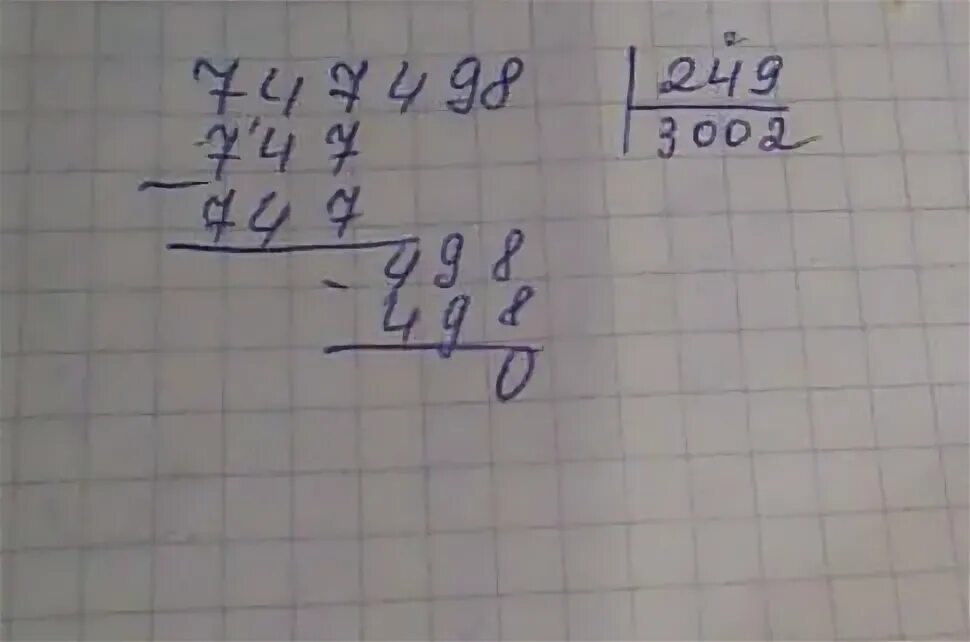 747498 | 249
747 | 3002
- 747
- 498
498
0